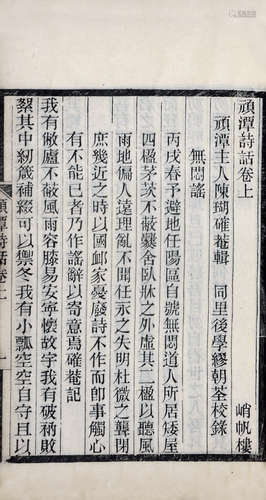 頑潭詩話卷上
峭帆樓
頑潭主人陳瑚確菴輯　同里後學繆朝荃校錄
無悶謠
丙戌春予避地任陽區自號無悶道人所居矮屋
四楹茅茨不蔽爨舍臥牀之外虛其二楹以聽風
雨地偏人遠理亂不聞任永之失明杜微之聾閉
庶幾近之時以國邮家憂廢詩不作而卽事觸心
有不能已者乃作謠辭以寄意焉確菴記
我有敝廬不蔽風雨容膝易安寧懷故宇我有破衲敗
絮其中紉箴補綴可以禦冬我有小瓢空空自守且以
頑潭詩話卷上
一